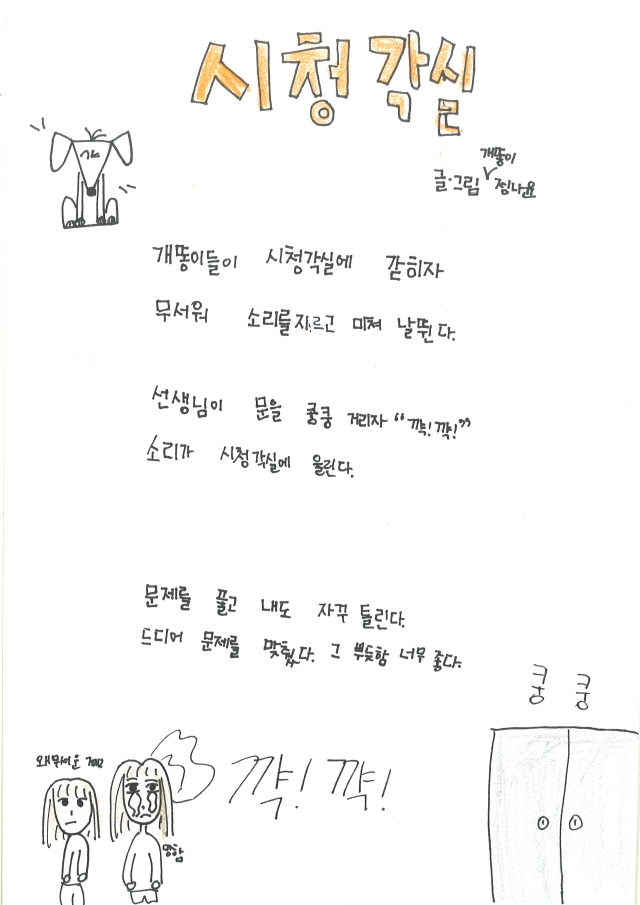 시청각실
개똥이
글·그림 정나윤
개똥이들이 시청각실에 갇히자
무서워 소리를지르고 미쳐 날뛴다.
선생님이 문을 쿵쿵 거리자 "꺅!꺅!"
소리가 시청각실에 울린다.
문제를 풀고 내도 자꾸 틀린다.
드디어 문제를 맞췄다. 그 뿌듯함 너무 좋다.
쿵 쿵
왜무서운
꺅! 꺅!